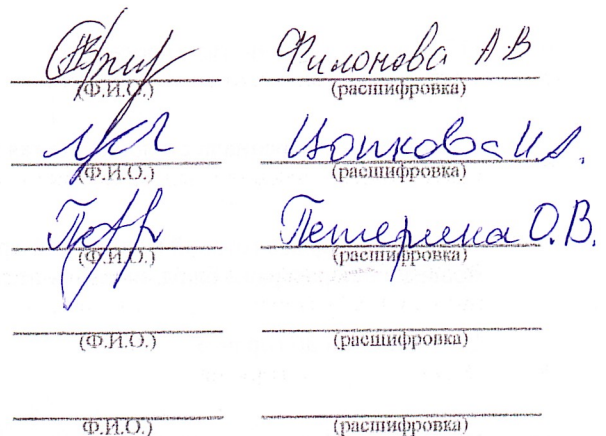 Филонова А В
(Ф.И.О.) (расшифровка)
Цопкова И.А.
(Ф.И.О.) (расшифровка)
Петерина О.В.
(Ф.И.О.) (расшифровка)
(Ф.И.О.) (расшифровка)
(Ф.И.О.) (расшифровка)